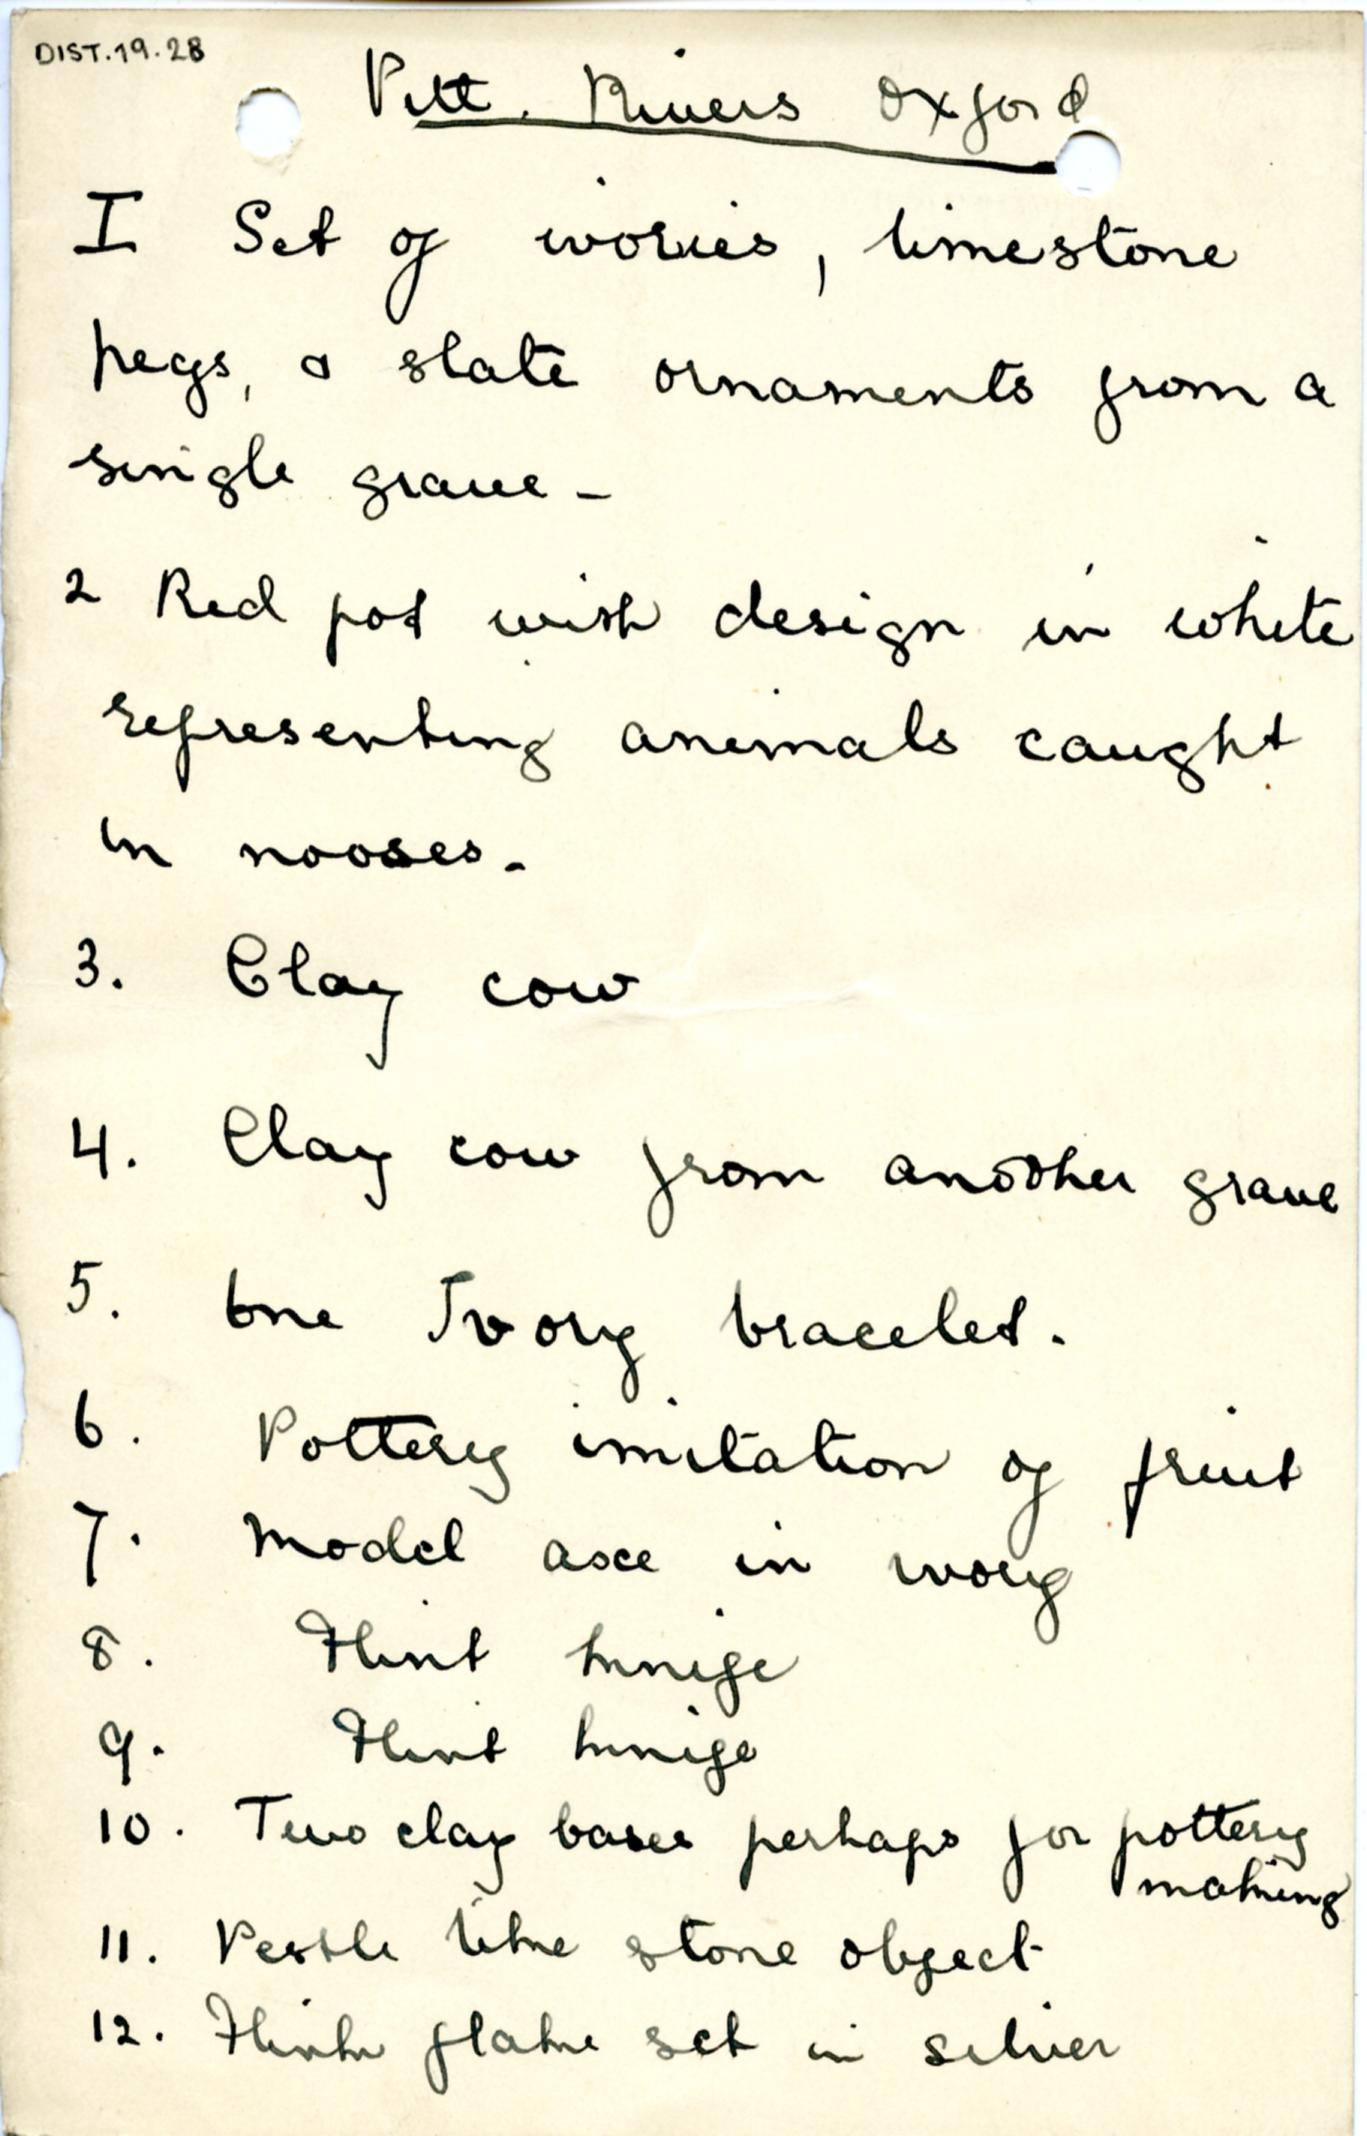 DIST.19.28
Pitt. Rivers Oxford
I Set of ivories, limestone
pegs, & slate ornaments from a
single grave -
2 Red pot with design in white
representing animals caught
in nooses -
3. Clay cow
4. Clay cow from another grave
5. One Ivory bracelet.
6. Pottery imitation of fruit
7. Model axe in ivory
8. Flint knife
9. Flint knife
10. Two clay bases perhaps for pottery
making
11. Pestle like stone object
12. Flint flake set in silver